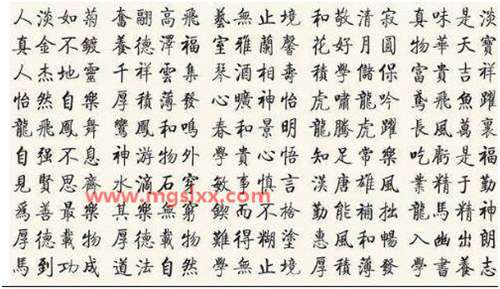 人淡如菊 奮翮高飛 藝無止境 和敬清寂 真味是淡
真金不鍍 養德澤福 室雅蘭馨 花好月圓 物華天寶
人杰地靈 千祥雲集 琴酒相壽 富貴吉祥
怡然自樂 厚積薄發 心曠神怡 虎嘯龍吟 鳶飛魚躍
龍飛鳳舞 鸞鳳和鳴 春和景明 龍騰虎躍 長風萬裏
自强不息 神游物外 學貴心悟 知足常樂 吃虧是福
見賢思齊 水滴石穿 敏事慎言 漢唐雄風 業精于勤
www.mgslxx.com
爲善最樂 其樂無窮 鍥而不捨 勤能補拙 龍馬精神
厚德載物 厚德載物 難得糊塗 惠風和暢 入幽出朗
馬到功成 道法自然 學無止境 厚積薄發 學書養志